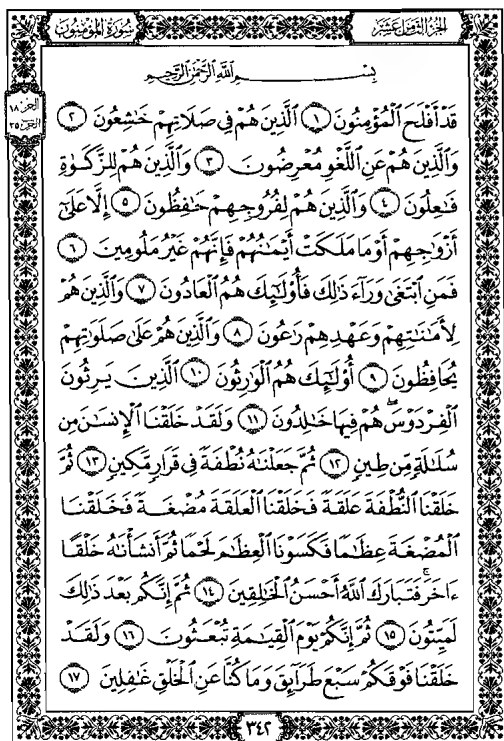 الجزء الثامن عشر
سورة المؤمنون
الجزء ١٨
الحزب ٣٥
بِسْمِ اللَّهِ الرَّحْمَٰنِ الرَّحِيمِ
قَدْ أَفْلَحَ الْمُؤْمِنُونَ ١ الَّذِينَ هُمْ فِي صَلَاتِهِمْ خَٰشِعُونَ ٢
وَالَّذِينَ هُمْ عَنِ اللَّغْوِ مُعْرِضُونَ ٣ وَالَّذِينَ هُمْ لِلزَّكَوٰةِ
فَٰعِلُونَ ٤ وَالَّذِينَ هُمْ لِفُرُوجِهِمْ حَٰفِظُونَ ٥ إِلَّا عَلَىٰٓ
أَزْوَٰجِهِمْ أَوْ مَا مَلَكَتْ أَيْمَٰنُهُمْ فَإِنَّهُمْ غَيْرُ مَلُومِينَ ٦
فَمَنِ ابْتَغَىٰ وَرَآءَ ذَٰلِكَ فَأُو۟لَٰٓئِكَ هُمُ الْعَادُونَ ٧ وَالَّذِينَ هُمْ
لِأَمَٰنَٰتِهِمْ وَعَهْدِهِمْ رَٰعُونَ ٨ وَالَّذِينَ هُمْ عَلَىٰ صَلَوَٰتِهِمْ
يُحَافِظُونَ ٩ أُو۟لَٰٓئِكَ هُمُ الْوَٰرِثُونَ ١٠ الَّذِينَ يَرِثُونَ
الْفِرْدَوْسَ هُمْ فِيهَا خَٰلِدُونَ ١١ وَلَقَدْ خَلَقْنَا الْإِنسَٰنَ مِن
سُلَٰلَةٍ مِّن طِينٍ ١٢ ثُمَّ جَعَلْنَٰهُ نُطْفَةً فِي قَرَارٍ مَّكِينٍ ١٣ ثُمَّ
خَلَقْنَا النُّطْفَةَ عَلَقَةً فَخَلَقْنَا الْعَلَقَةَ مُضْغَةً فَخَلَقْنَا
الْمُضْغَةَ عِظَٰمًا فَكَسَوْنَا الْعِظَٰمَ لَحْمًا ثُمَّ أَنشَأْنَٰهُ خَلْقًا
ءَاخَرَ ۚ فَتَبَارَكَ اللَّهُ أَحْسَنُ الْخَٰلِقِينَ ١٤ ثُمَّ إِنَّكُم بَعْدَ ذَٰلِكَ
لَمَيِّتُونَ ١٥ ثُمَّ إِنَّكُمْ يَوْمَ الْقِيَٰمَةِ تُبْعَثُونَ ١٦ وَلَقَدْ
خَلَقْنَا فَوْقَكُمْ سَبْعَ طَرَآئِقَ وَمَا كُنَّا عَنِ الْخَلْقِ غَٰفِلِينَ ١٧
٣٤٢